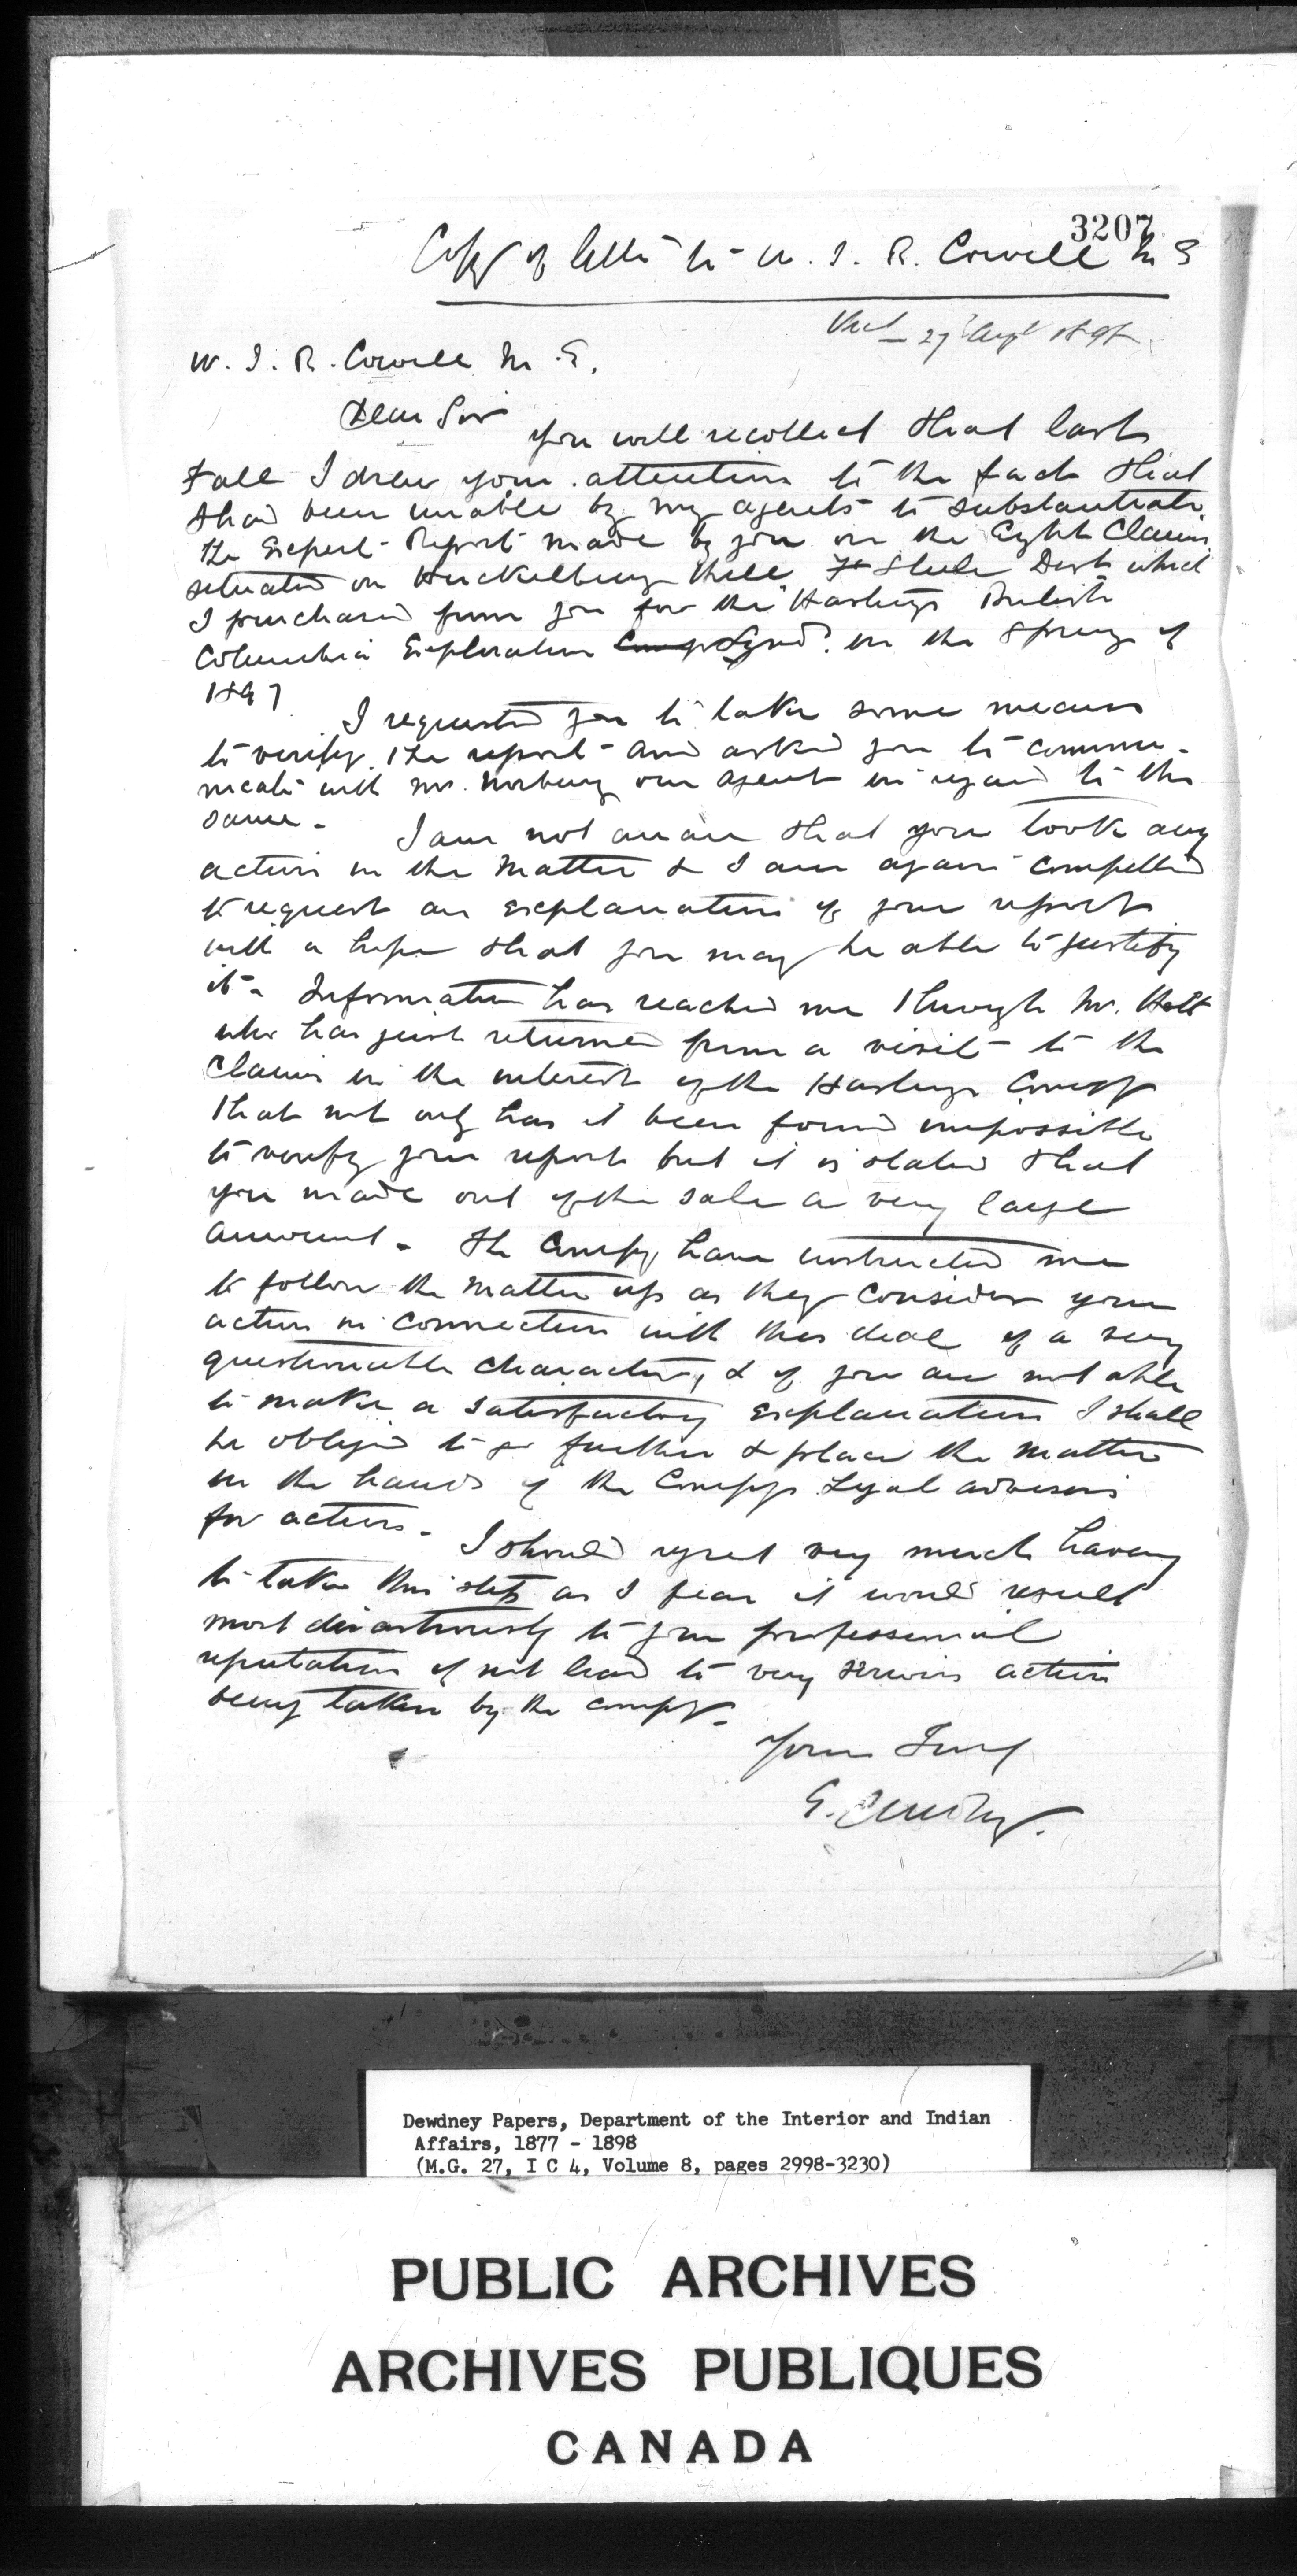 3207
Copy of letter to W. J. R. Cowell M E
Vict 27th Augt 1898
W. J. R. Cowell M. E.
Dear Sir
You will recollect that last
Fall I drew your attention to the fact that
I had been unable by my agents to substantiate
the Expert Report made by you on the Eight Claims
situated on Huckelberry Hill Ft Steele Dist which
I purchased from you for the Hastings British
Columbia Exploration Comp Synd. in the Spring of
1897
I requested you to take some means
to verify the report and asked you to commu-
nicate with Mr. Norbury our agent in regard to the
same.
I am not aware that you took any
action in the matter & I am again compelled
to request an explanation of your report
with a hope that you may be able to justify
it. Information has reached me through Mr. Holt
who has just returned from a visit to the
Claims in the interest of the Hastings Compy
that not only has it been found impossible
to verify your report but it is stated that
you made out of the sale a very large
amount. The Compy have instructed me
to follow the matter up as they consider your
action in connection with this deal of a very
questionable character, & if you are not able
to make a satisfactory explanation I shall
be obliged to go further & place the matter
in the hands of the Compys Legal advisers
for action.
I should regret very much having
to take this step as I fear it would result
most disastrously to your professional
reputation if not lead to very serious action
being taken by the compy.
Yours Truly
E. Dewdney.
Dewdney Papers, Department of the Interior and Indian
Affairs, 1877 - 1898
(M.G. 27, I C 4, Volume 8, pages 2998-3230)
PUBLIC ARCHIVES
ARCHIVES PUBLIQUES
CANADA